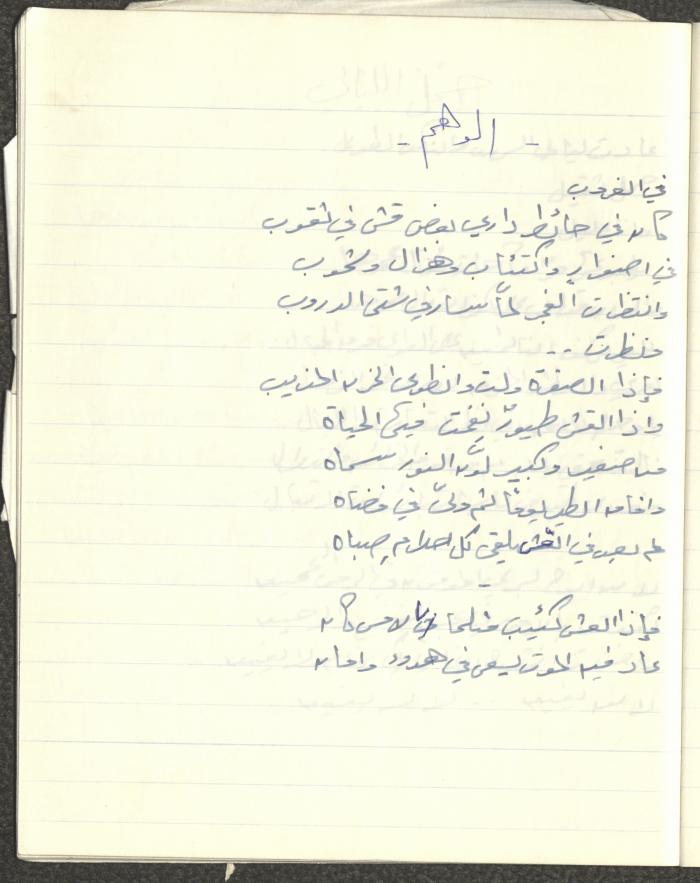 - الوهم -
في الغروب
كان في حائط داري بعض قش في ثقوب
في اصفرار واكتئاب وهزال وشحوب
وانتظرت الفجر لمّا سار في شتى الدروب
ونظرت ..
فإذا الصفرة ولت وانطوى الحزن المذيب
واذا القش طيورٌ نفخت فيها الحياة
من صغير وكبير لوّن النور سماه
وافاق الطير يومًا ثم ولىّ في فضاه
لم يعد في العش يلقى كل احلام صباه
-
فإذا العش كئيب مثلما بالامس كان
عاد فيه الموت يسعى في هدوء وامان